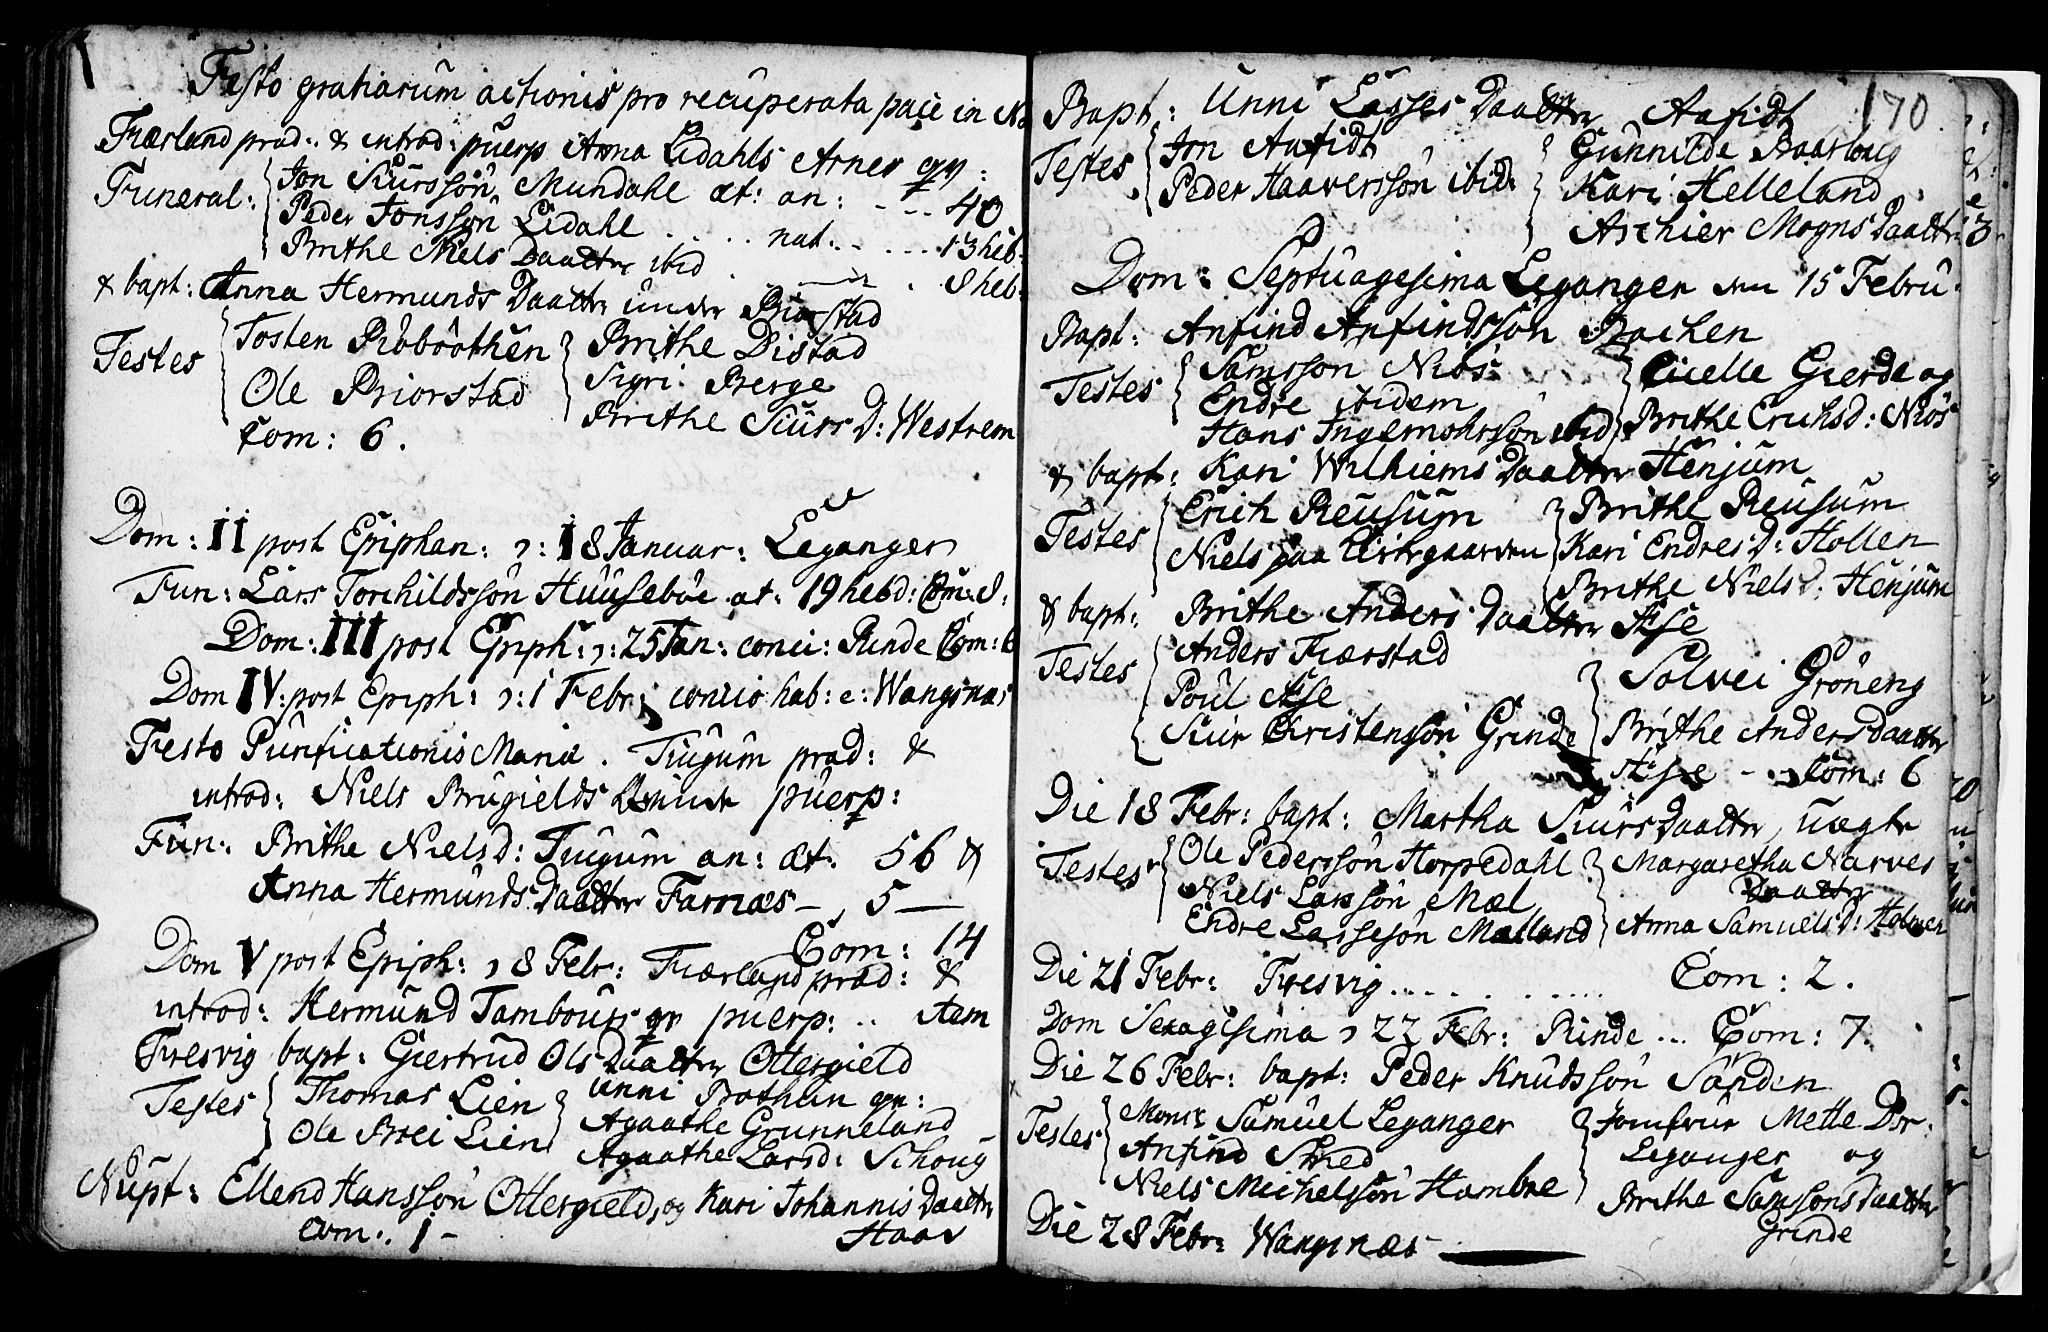 Festo gratiarum actionis pro recuperata pace in
Fiærland præd: & introd: puerp Anna Lidahls Arnes qv:
Funeral: Jon Siurssøn Mundahl æt: an: - - - 40
Peder Jonssøn Lidahl . . . . . nat: - . . . . 13 heb:
Brithe Niels Daatter ibid . . 8 heb:
& bapt: Anna Hermunds Daatter under Biorstad
Testes Tosten Raböathen Brithe Distad
Ole Biorstad Sigri Berge
Com: 6. Brithe Siurs D: Westrem
Dom: II post Epiphan: ɔ: 18 Januar: Leganger
Fun: Lars Torchildssøn Huusebøe æt: 19 hebd: Com: 8:
Dom: III post Epiph: ɔ: 25 Jan: conci: Rinde Com: 6
Dom IV: post Epiph: ɔ: 1 Febr: concio hab: e: Wangsnæs
Festo Purificationis Mariæ. Tiugum præd: &
introd: Niels Brugields Qvinde puerp:
Fun: Brithe Niels D: Tiugum an: æt: 56 &
Anna Hermunds Daatter Farnæs - , 5 —
Com: 14
Dom V post Epiph: ɔ 8 Febr: Fiærland præd: &
introd: Hermund Tambours qv puerp: .. Item
Fresvig bapt: Giertrud Ols Daatter Ottergield
Testes Thomas Lien Unni Bothun qv:
Ole Brei Lien Agaathe Grunneland
Agaathe Lars d: Schoug
Nupt: Ellend Hanssøn Ottergield, og Kari Johannis Daatter
Com: 1 - Haav
170
Bapt: Unni Lasses Daatter Aafidt
Testes Jon Aafidt Gunnilde Baarloug
Peder Haaverssøn ibid: Kari Helleland
Aschier Mogns Daatter
Dom: Septuagesima Leganger den 15 Febru.
Bapt: Anfind Anfindssøn Bachen
Testes Samsson Niøs Cicelle Gierde og
Endre ibidem Brithe Erichs d: Niøs
Hans Ingemohrsøn ibid
& bapt: Kari Wilhiems Daatter Henjum
Testes Erich Reusum Brithe Reusum
Niels paa Kirkegaarden Kari Endres D: Hollen
Brithe Niels d: Henjum
& bapt: Brithe Anders Daatter Æse
Testes Anders Fiærstad Solvei Grøneng
Poul Æse Brithe Anders Daatter
Siur Christensøn Grinde Æse - - Com: 6
Die 18 Febr: bapt: Martha Siurs Daatter, uægte
Testes Ole Pederssøn Horpedahl Margaretha Narves
Niels Larssøn Mæl Daatter
Endre Lassesøn Mælland Anna Samuels D: Holmen
Die 21 Febr: Fresvig . . . . . . . . . Com: 2.
Dom Sexagesima ɔ 22 Febr: Rinde ... Com: 7.
Die 26 Febr: bapt: Peder Knudssøn Sanden
Testes Monsr Samuel Leganger Jomfrue Mette Dor.
Anfind Skred Leganger og
Niels Michelssøn Hambre Brithe Samsons Daatter
Die 28 Febr: Wangsnæs Grinde